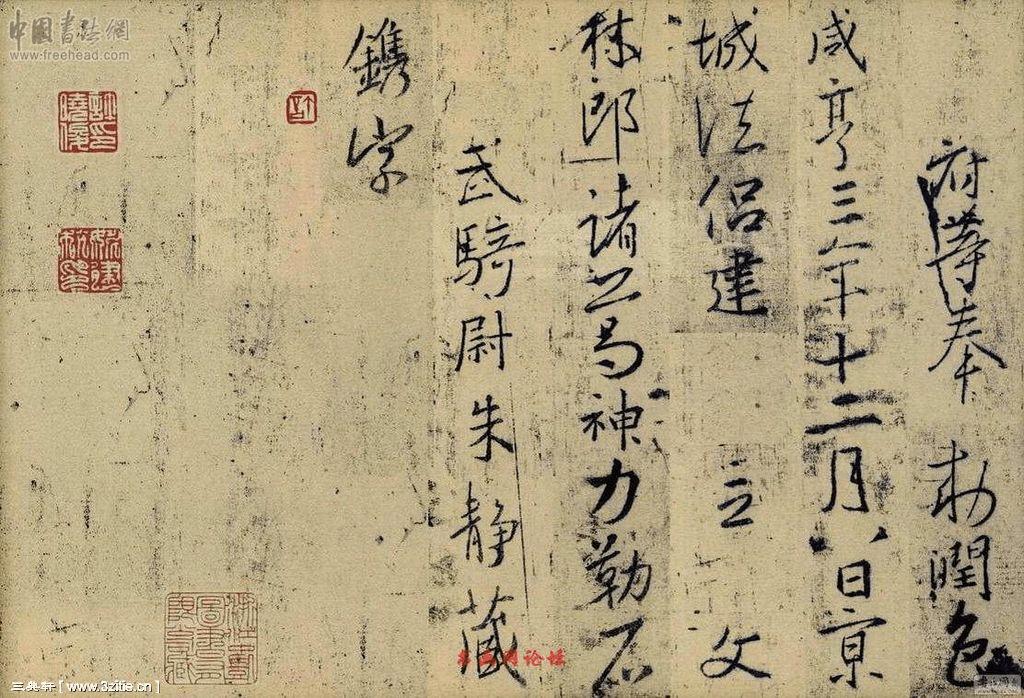 府等奉 勅潤色
咸亨三年十二月八日京
城法侶建 立 文
林郎諸葛神力勒石
武騎尉朱静藏
鐫字
中國書法網
www.freehead.com
三典轩 [www.3zitie.cn]